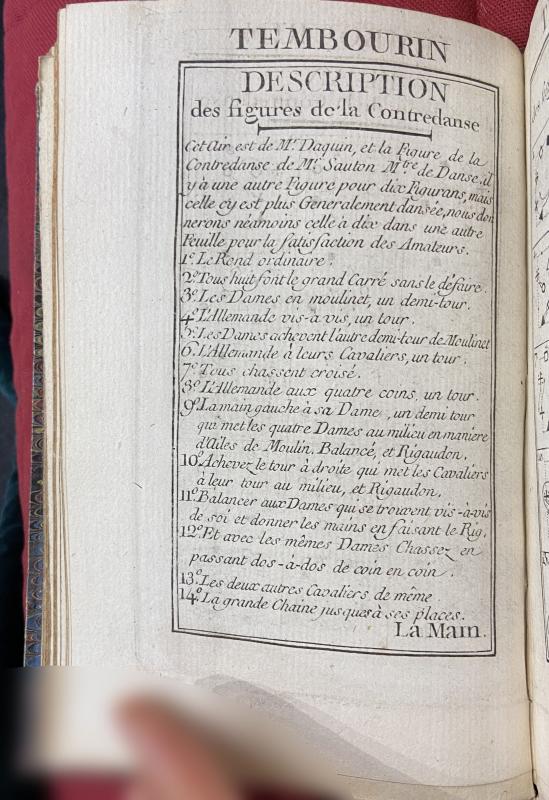 TEMBOURIN
DESCRIPTION
des figures de la Contredanse
Cet Air est de Mr. Daquin, et la Figure de la
Contredanse de Mr. Sauton Mtre de Danse, il
y à une autre Figure pour dix Figurans, mais
celle cy est plus Generalement dansée, nous don
nerons néamoins celle à dix dans une autre
Feuille pour la satisfaction des Amateurs.
1º. Le Rond ordinaire.
2º. Tous huit font le grand Carré sans le défaire.
3º. Les Dames en moulinet, un demi-tour.
4º. L'Allemande vis-à vis, un tour.
5º. Les Dames achevent l'autre demi-tour de Moulinet
6º. L'Allemande à leurs Cavaliers, un tour.
7º. Tous chassent croisé.
8º. L'Allemande aux quatre coins, un tour.
9º. La main gauche à sa Dame, un demi tour
qui met les quatre Dames au milieu en maniere
d'Ailes de Moulin. Balancé, et Rigaudon.
10º. Achevez le tour à droite qui met les Cavaliers
à leur tour au milieu, et Rigaudon.
11º. Balancer aux Dames qui se trouvent vis-à-vis
de soi et donner les mains en faisant le Rig.
12º. Et avec les mêmes Dames Chassez en
passant dos-à-dos de coin en coin.
13º. Les deux autres Cavaliers de même.
14º. La grande Chaine jusques à ses places.
La Main.